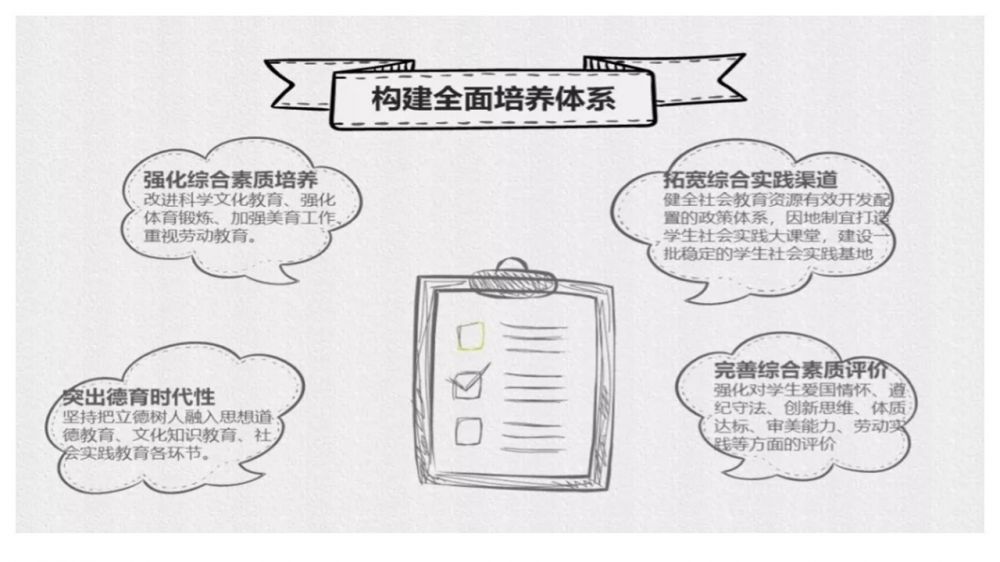 构建全面培养体系
强化综合素质培养
改进科学文化教育、强化
体育锻炼、加强美育工作、
重视劳动教育。
拓宽综合实践渠道
健全社会教育资源有效开发配
置的政策体系，因地制宜打造
学生社会实践大课堂，建设一
批稳定的学生社会实践基地
突出德育时代性
坚持把立德树人融入思想道
德教育、文化知识教育、社
会实践教育各环节。
完善综合素质评价
强化对学生爱国情怀、遵
纪守法、创新思维、体质
达标、审美能力、劳动实
践等方面的评价